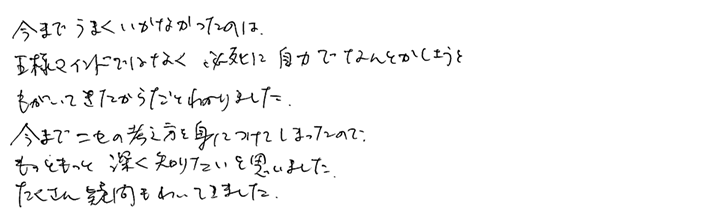 今までうまくいかなかったのは、
王様マインドではなく 必死に自力でなんとかしようと
もがいてきたからだとわかりました。
今までニセの考え方を身につけてしまったので、
もっともっと 深く知りたいと思いました。
たくさん疑問もわいてきました。